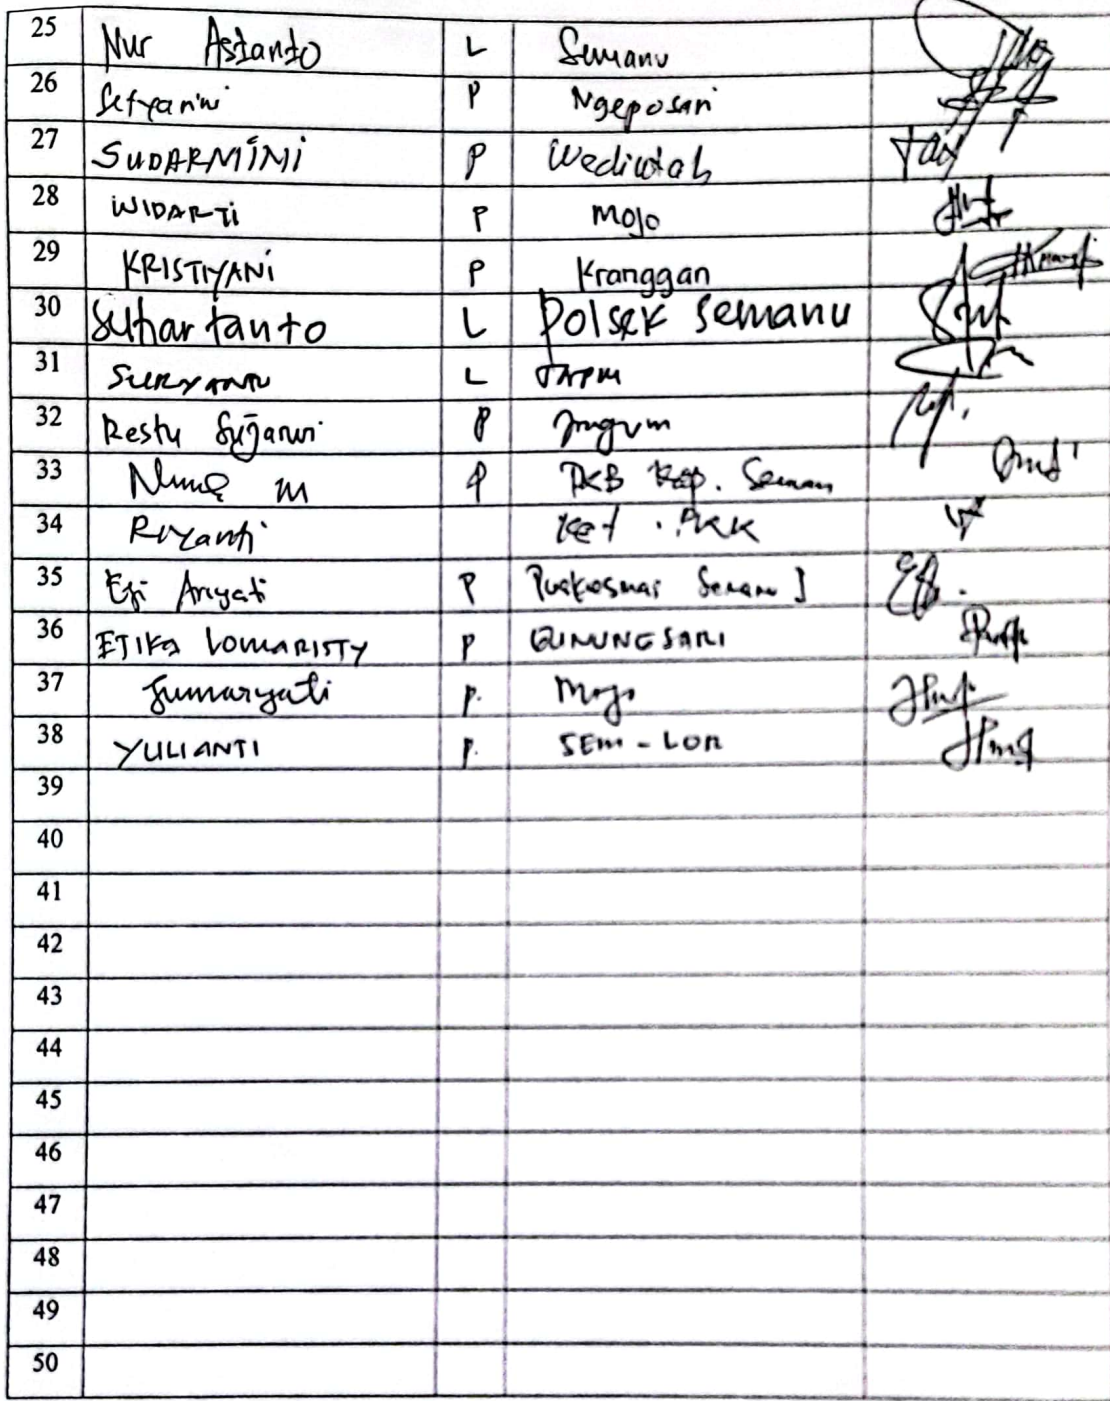 25 Nur Astanto L Semanu
26 Setyarini P Ngeposari
27 SUDARMINI P Wediutah
28 WIDARTI P Mojo
29 KRISTIYANI P Kranggan
30 Suhartanto L Polsek Semanu
31 SURYANTO L
32 Restu P
33 M P PKB Kap. Seman
34 Riyanti Ket. PKK
35 Efi Aryati P Puskesmas Seman I
36 ETIKA LOMARISTY P GUNUNGSARI
37 Sumaryati P. Mojo
38 YULIANTI P. SEM - LOR
39
40
41
42
43
44
45
46
47
48
49
50